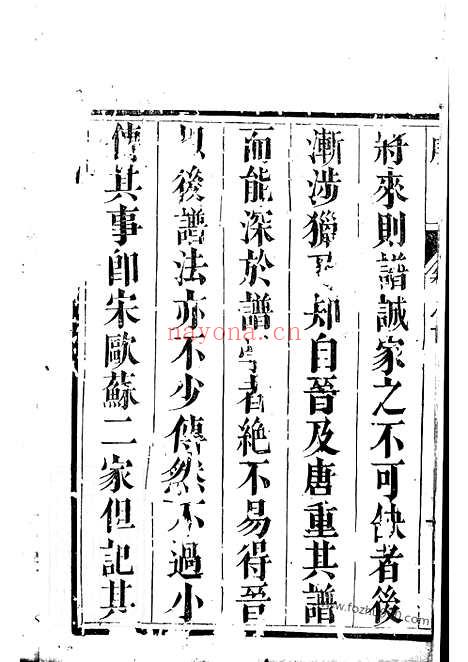 將來則譜誠家之不可缺者後
漸涉獵乃知自晉及唐重其譜
而能深於譜學者絕不易得晉
以後譜法亦不少傳然不過小
傳其事即宋歐蘇二家但記其
nayona.cn
www.fozhu920.com